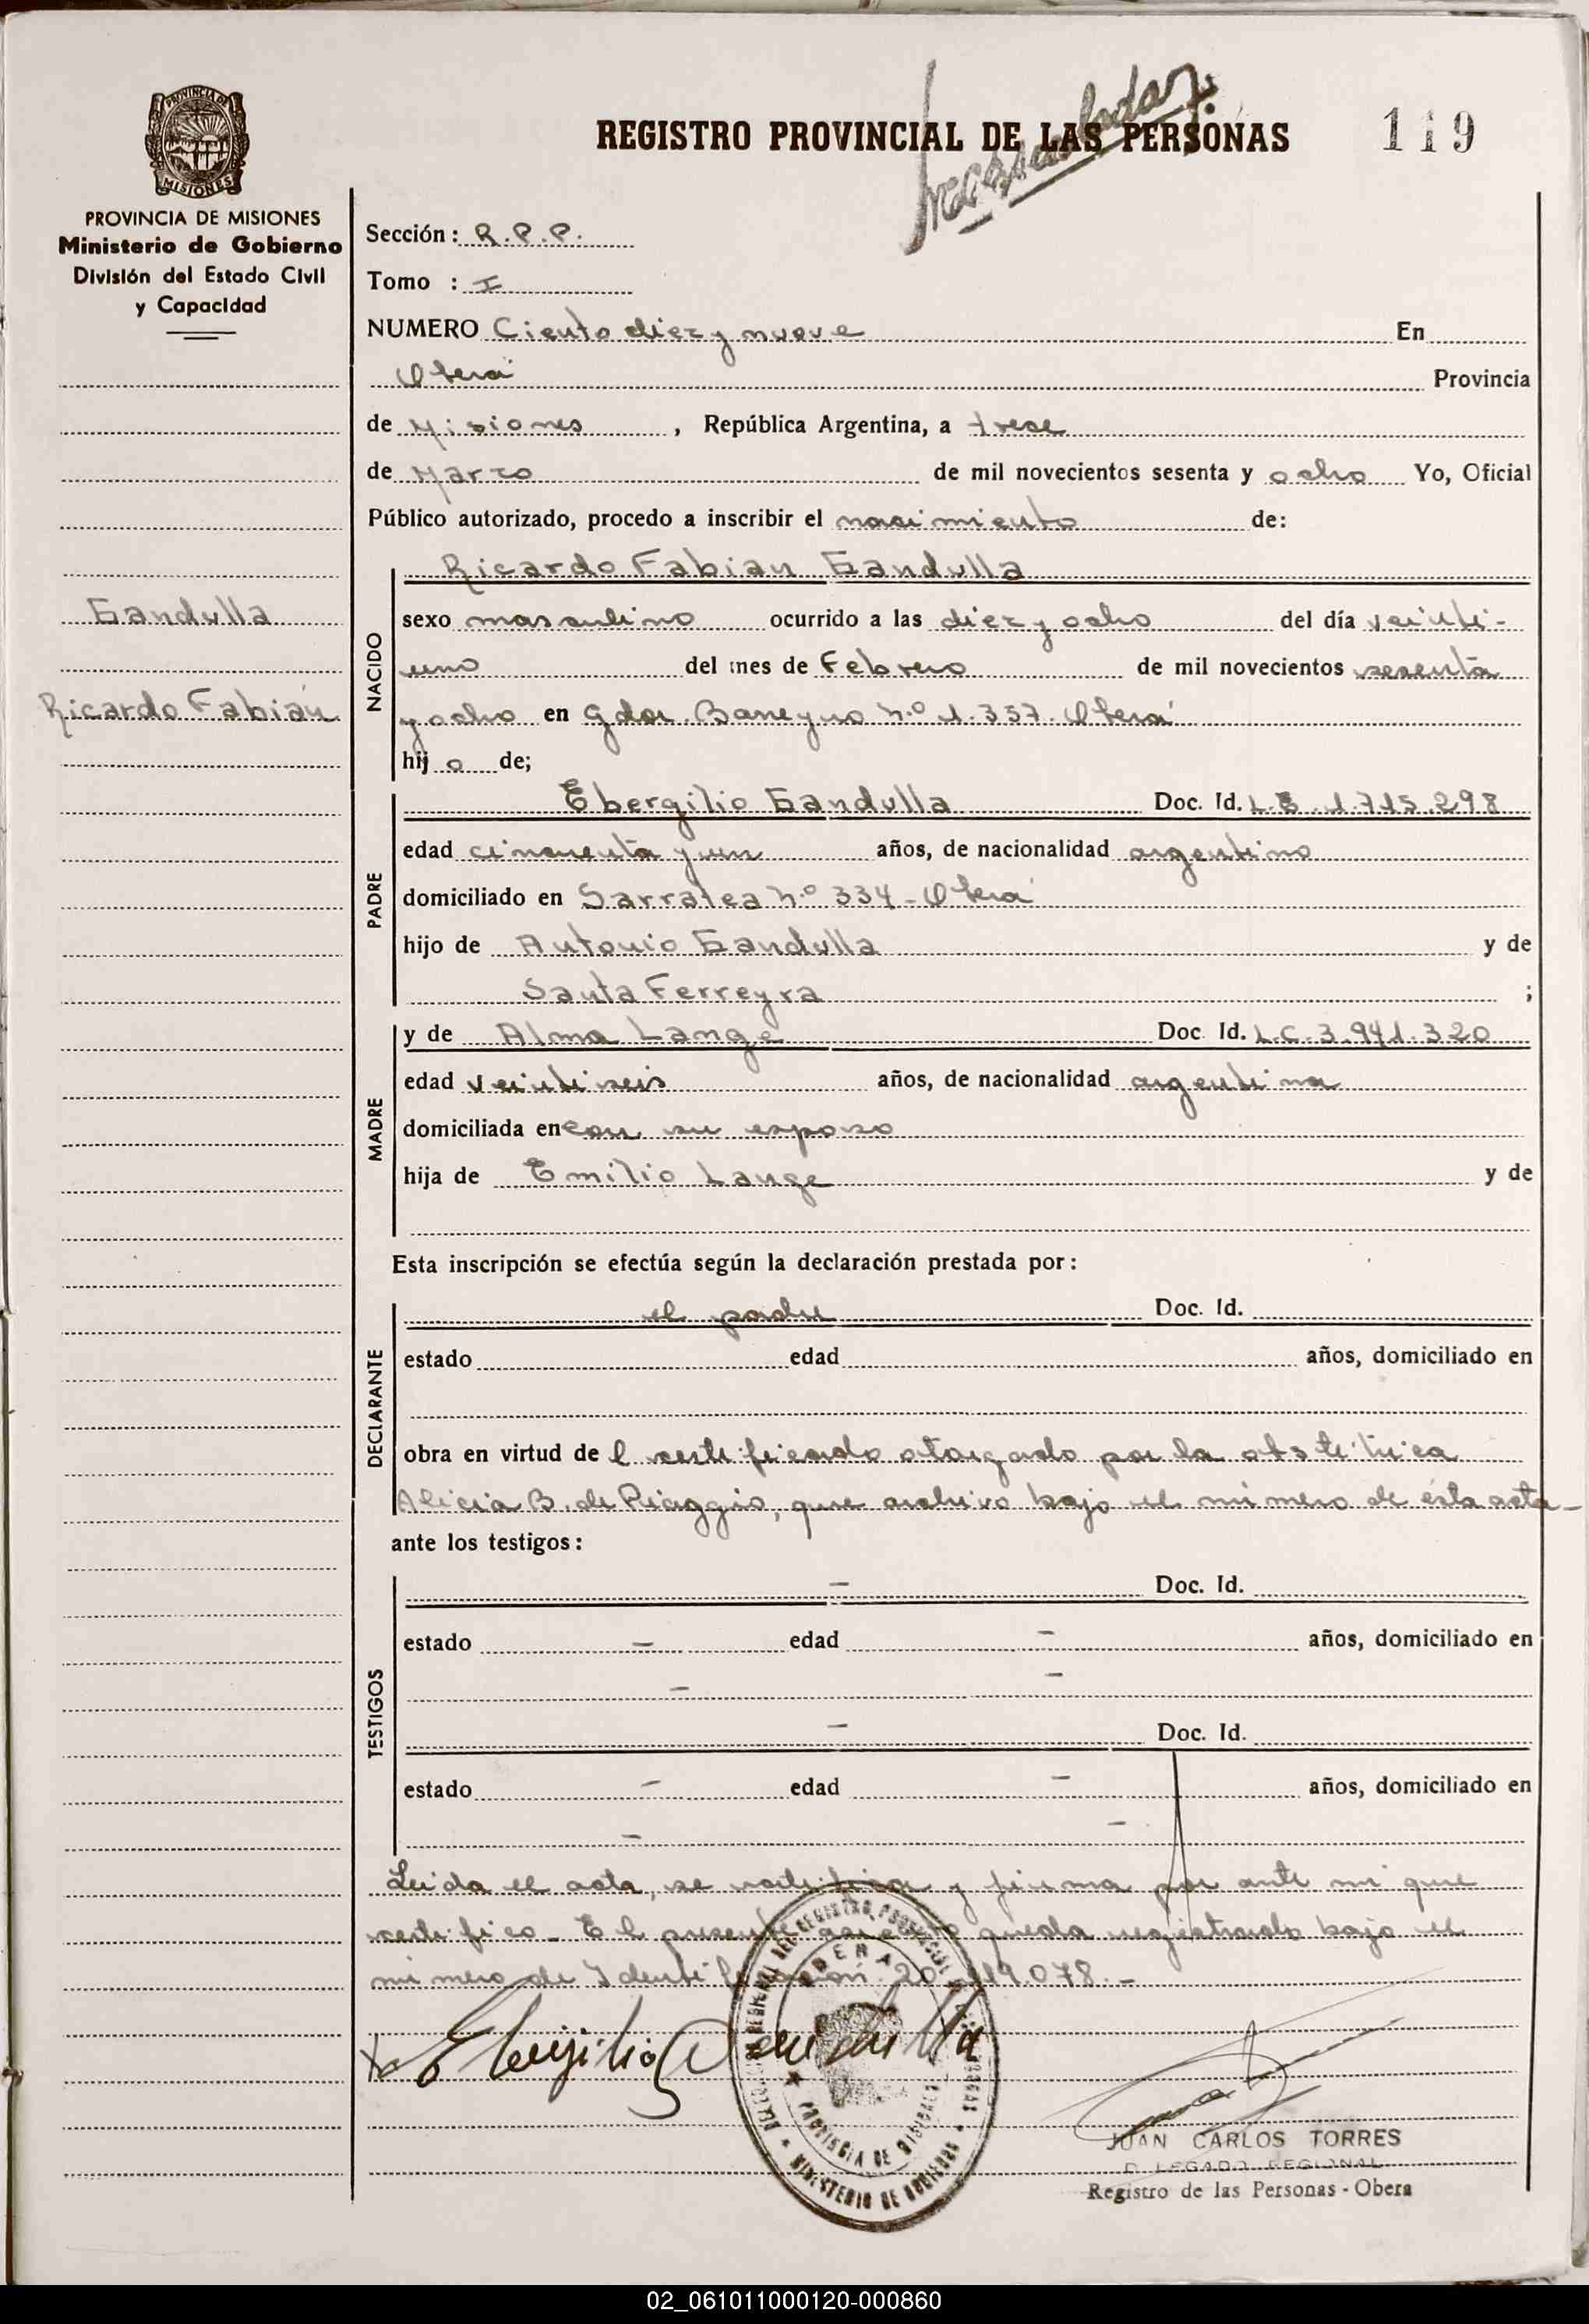 REGISTRO PROVINCIAL DE LAS PERSONAS
119
PROVINCIA DE MISIONES
Ministerio de Gobierno
División del Estado Civil
y Capacidad
Sección: R.P.P.
Tomo : I
NUMERO Ciento diez y nueve En
Oberá Provincia
de Misiones , República Argentina, a trece
de Marzo de mil novecientos sesenta y ocho Yo, Oficial
Público autorizado, procedo a inscribir el nacimiento de:
Gandulla
Ricardo Fabián
NACIDO
Ricardo Fabian Gandulla
sexo masculino ocurrido a las diez y ocho del día veinti-
uno del mes de Febrero de mil novecientos sesenta
y ocho en Gdor. Barreyro N.º 1.357. Oberá
hij o de;
PADRE
Ebergilio Gandulla Doc. Id. L.E. 1.715.298
edad cincuenta y un años, de nacionalidad argentino
domiciliado en Sarratea N.º 334 - Oberá
hijo de Antonio Gandulla y de
Santa Ferreyra ;
MADRE
y de Alma Lange Doc. Id. L.C. 3.941.320
edad veintiseis años, de nacionalidad argentina
domiciliada en con su esposo
hija de Emilio Lange y de
Esta inscripción se efectúa según la declaración prestada por:
DECLARANTE
el padre Doc. Id.
estado edad años, domiciliado en
obra en virtud de l certificado otorgado por la obstétrica
Alicia B. de Piaggio, que archivo bajo el número de ésta acta-
ante los testigos:
TESTIGOS
- Doc. Id.
estado - edad - años, domiciliado en
- -
- Doc. Id.
estado - edad - años, domiciliado en
- -
Leida el acta, se ratifica y firma por ante mi que
certifico. El presente queda registrado bajo el
número de Identificación 20. 119.078.-
Ebergilio Gandulla
OBERA
PROVINCIA DE MISIONES
MINISTERIO DE GOBIERNO
JUAN CARLOS TORRES
DELEGADO REGIONAL
Registro de las Personas - Obera
02_061011000120-000860